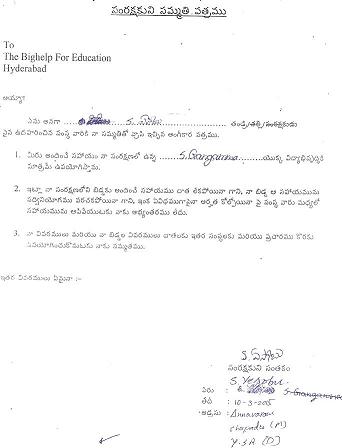 సంరక్షకుని సమ్మతి పత్రము
To
The Bighelp For Education
Hyderabad
అయ్యా!
నేను అనగా S. యేసోబు తండ్రి/తల్లి/సంరక్షకుడు
పైన ఉదహరించిన సంస్థ వారికి నా సమ్మతితో వ్రాసి ఇచ్చిన అంగీకార పత్రము.
1. మీరు అందించే సహాయం నా సంరక్షణలో ఉన్న S. Gangamma యొక్క విద్యాభివృద్ధికి
మాత్రమే ఉపయోగిస్తాము.
2. ఇట్లా నా సంరక్షణలోని బిడ్డకు అందించే సహాయము దాత లేకపోయినా గాని, నా బిడ్డ ఆ సహాయమును
సద్వినియోగము పరచకపోయినా గాని, ఇంక ఏవిధముగానైనా అర్హత కోల్పోయినా పై సంస్థ వారు మధ్యలో
సహాయమును ఆపివేయుటకు నాకు అభ్యంతరము లేదు.
3. నా వివరములు మరియు నా బిడ్డల వివరములు దాతలకు ఇతర సంస్థలకు మరియు ప్రచారము కొరకు
ఉపయోగించుకొనుటకు నాకు సమ్మతము.
ఇతర వివరములు ఏమైనా :-
S. యేసోబు
సంరక్షకుని సంతకం
S. Yesobu
పేరు : S. Gangamma
తేది : 10-3-2015
అడ్రసు :
(M)
Y.S.R (D)